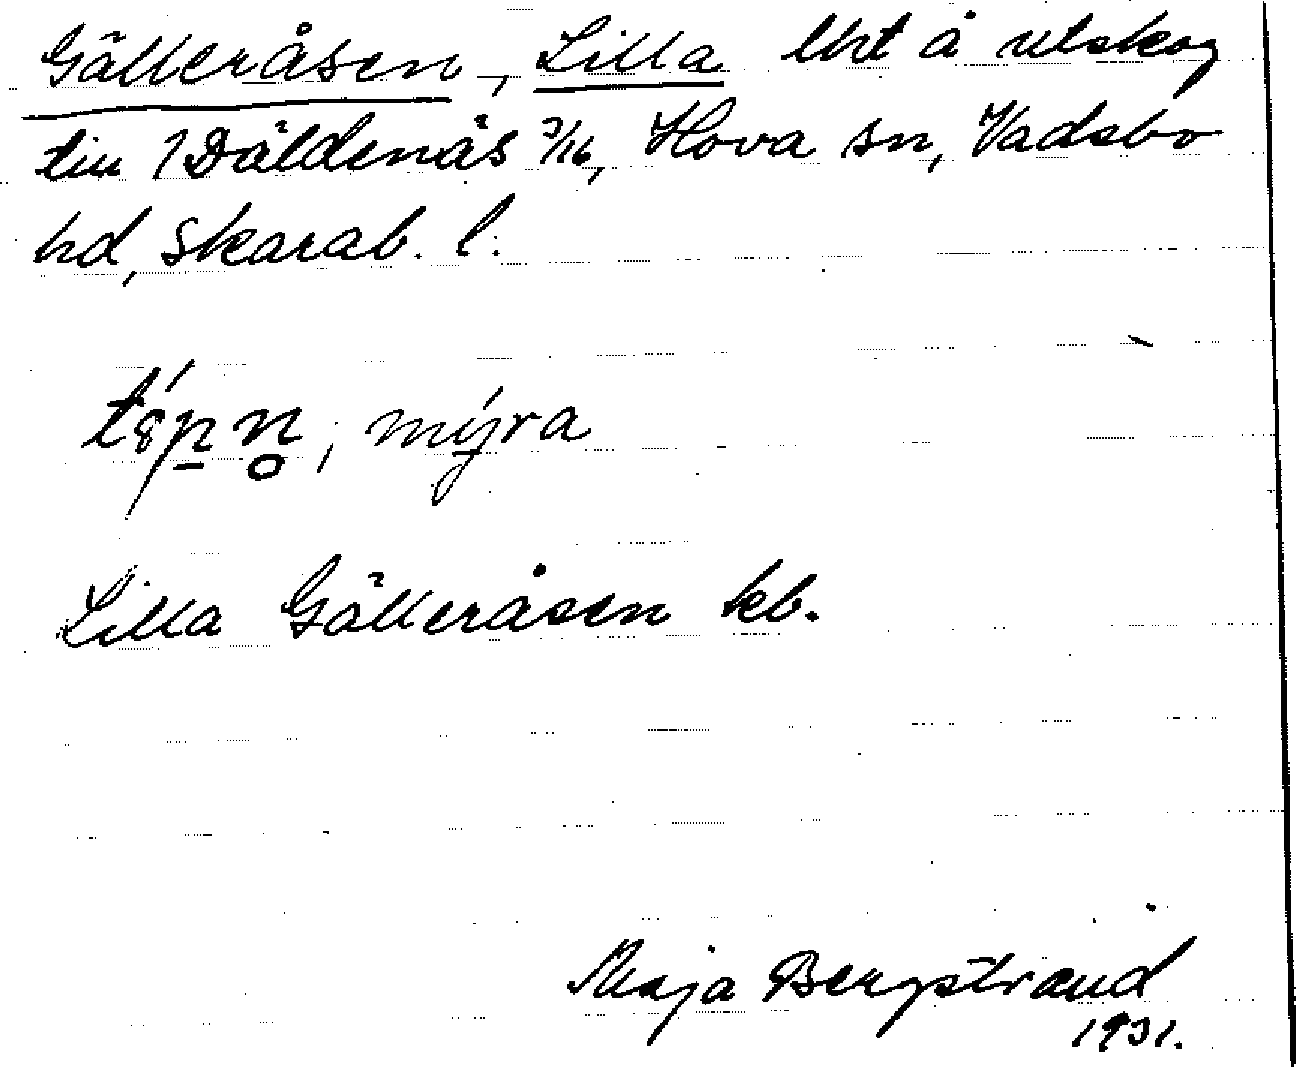 Gälleråsen, Lilla lht å utskog
till 1 Däldenäs 7/16, Hova sn, Vadsbo
hd, Skarab. l.
mýra
Lilla Gälleråsen kb.
Maja Bergstrand
1931.